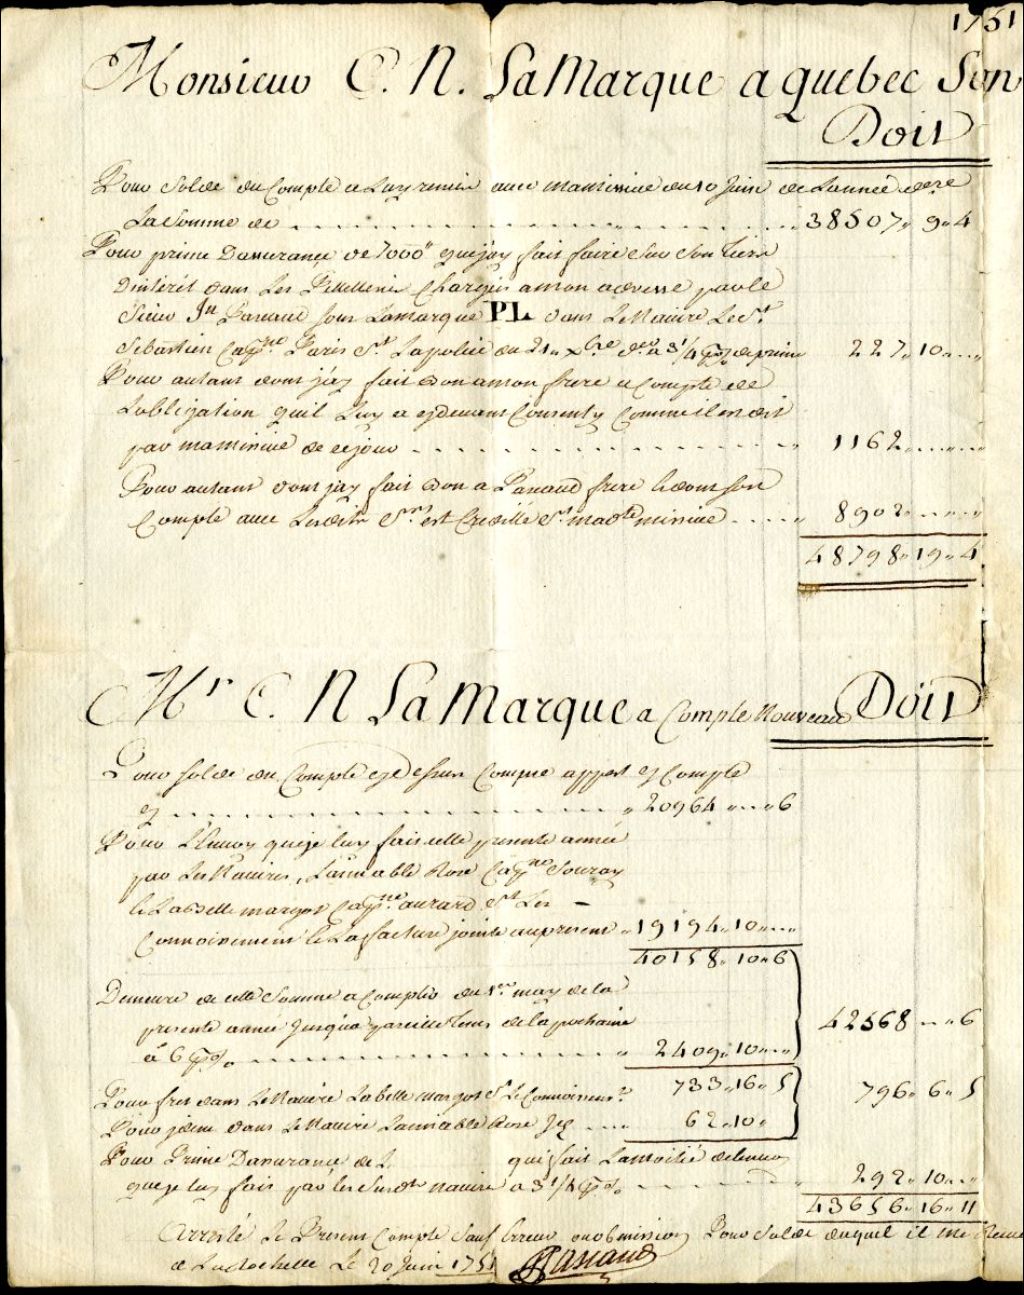 1751
Monsieur C. N. LaMarque a quebec Son
Doit
Pour Solde du Compte a Luy remis avec ma missive du 10 Juin de Lannée dre
La Somme de 38507,, 9,, 4
Pour prime Dassurance de 7000 que jay fait faire Sur Son tiers
Dinterêt dans Les Pelleteries Chargées a mon adresse par le
Sieur Jn Pascaud sous Lamarque PL dans Le Navire Le St
Sebastien Capne Paris St La police du 21 xbre der a 3 1/4 p% de prime 227,, 10
Pour autant dont j'ay fait Don a mon frere a Compte de
Lobligation quil Luy a cydevant Consenty Comme il en dit
par ma missive de ce jour 1162
Pour autant dont jay fait Don a Pascaud frere dont son
Compte avec Lesdits Srs est Credité St madte missive 8902
48798,, 19,, 4
Mr C. N LaMarque a Compte Nouveau Doit
Pour Solde du Compte cy dessus Comme appert cy Compte
cy 20964 6
Pour L'Envoy que je luy fais cette presente année
par Les Navires, Laimable Rose Capne Souray
& La belle margot Capne aurard St Les
Connoissement & La facture jointe au present 19194,, 10
40158,, 10,, 6
Demeure de cette Somme a Compter du 1er may de la
presente année Jusqua pareille tems de la prochaine 42568 6
à 6 p% 2409,, 10
Pour fret dans Le Navire La belle margot St Le Connoissement 733,, 16,, 5 796,, 6,, 5
Pour jdem dans Le Navire Laimable Rose 62,, 10
Pour Prime Dassurance de L qui fait Lamoitié de lenvoy
que je luy fais par les Susdt navire a 3 1/4 p% 292,, 10
43656,, 16,, 11
Arresté Le Present Compte Sauf Erreur ou obmission Pour Solde duquel il me
a La Rochelle Le 20 Juin 1751 Pascaud